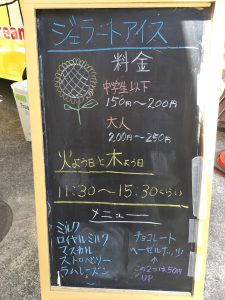 ジェラートアイス
料金
中学生以下
150円〜200円
大人
200円〜250円
火よう日と木よう日
11:30〜15:30くらい
メニュー
ミルク
ロイヤルミルク
マスカル
ストロベリー
ラムレーズン
チョコレート
ヘーゼルナッツ
この2つは50円
UP